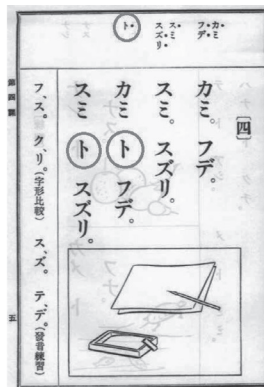 カミ
フデ
スミ
スズリ
ト
[四]
カミ。 フデ。
スミ。 スズリ。
カミ ト フデ。
スミ ト スズリ。
フ、ス。 ク、リ。(字形比較) ス、ズ。 テ、デ。(發音練習)
第四課
五